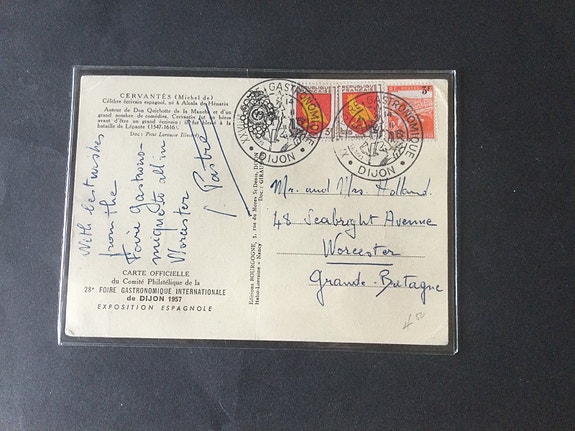 CERVANTÈS (Michel de)
Célèbre écrivain espagnol, né à Alcala de Hénarès
Auteur de Don Quichotte de la Manche et d'un
grand nombre de comédies. Cervantès fut un héros
avant d'être un grand écrivain : il fut blessé à la
bataille de Lépante (1547-1616).
Doc: Petit Larousse
With best wishes
from the
Foire Gastrono-
mique to all in
Worcester
CARTE OFFICIELLE
du Comité Philatélique de la
28e FOIRE GASTRONOMIQUE INTERNATIONALE
de DIJON 1957
EXPOSITION ESPAGNOLE
Editions BOURGOGNE, 1, rue du Morey St-Denis,
Hélio-Lorraine - Nancy
Doc.:
GASTRONOMIQUE
DIJON
GASTRONOMIQUE
DIJON
3F
Mr. and Mrs. Holland.
48 Seabright Avenue
Worcester
Grande-Bretagne
4.50